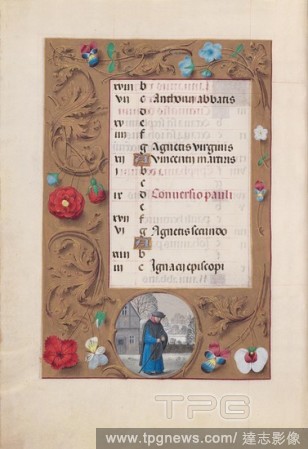 xviii b
vii c Anthonii abbatis
d
xv e
iiii f
g Agnetis virginis
xii A Vincentii martiris
b
c
ix d Conversio pauli
e
xvii f
vi g Agnetis secundo
A
xiiii b
iii c Ignacii episcopi
TPG
www.tpgnews.com/ 達志影像